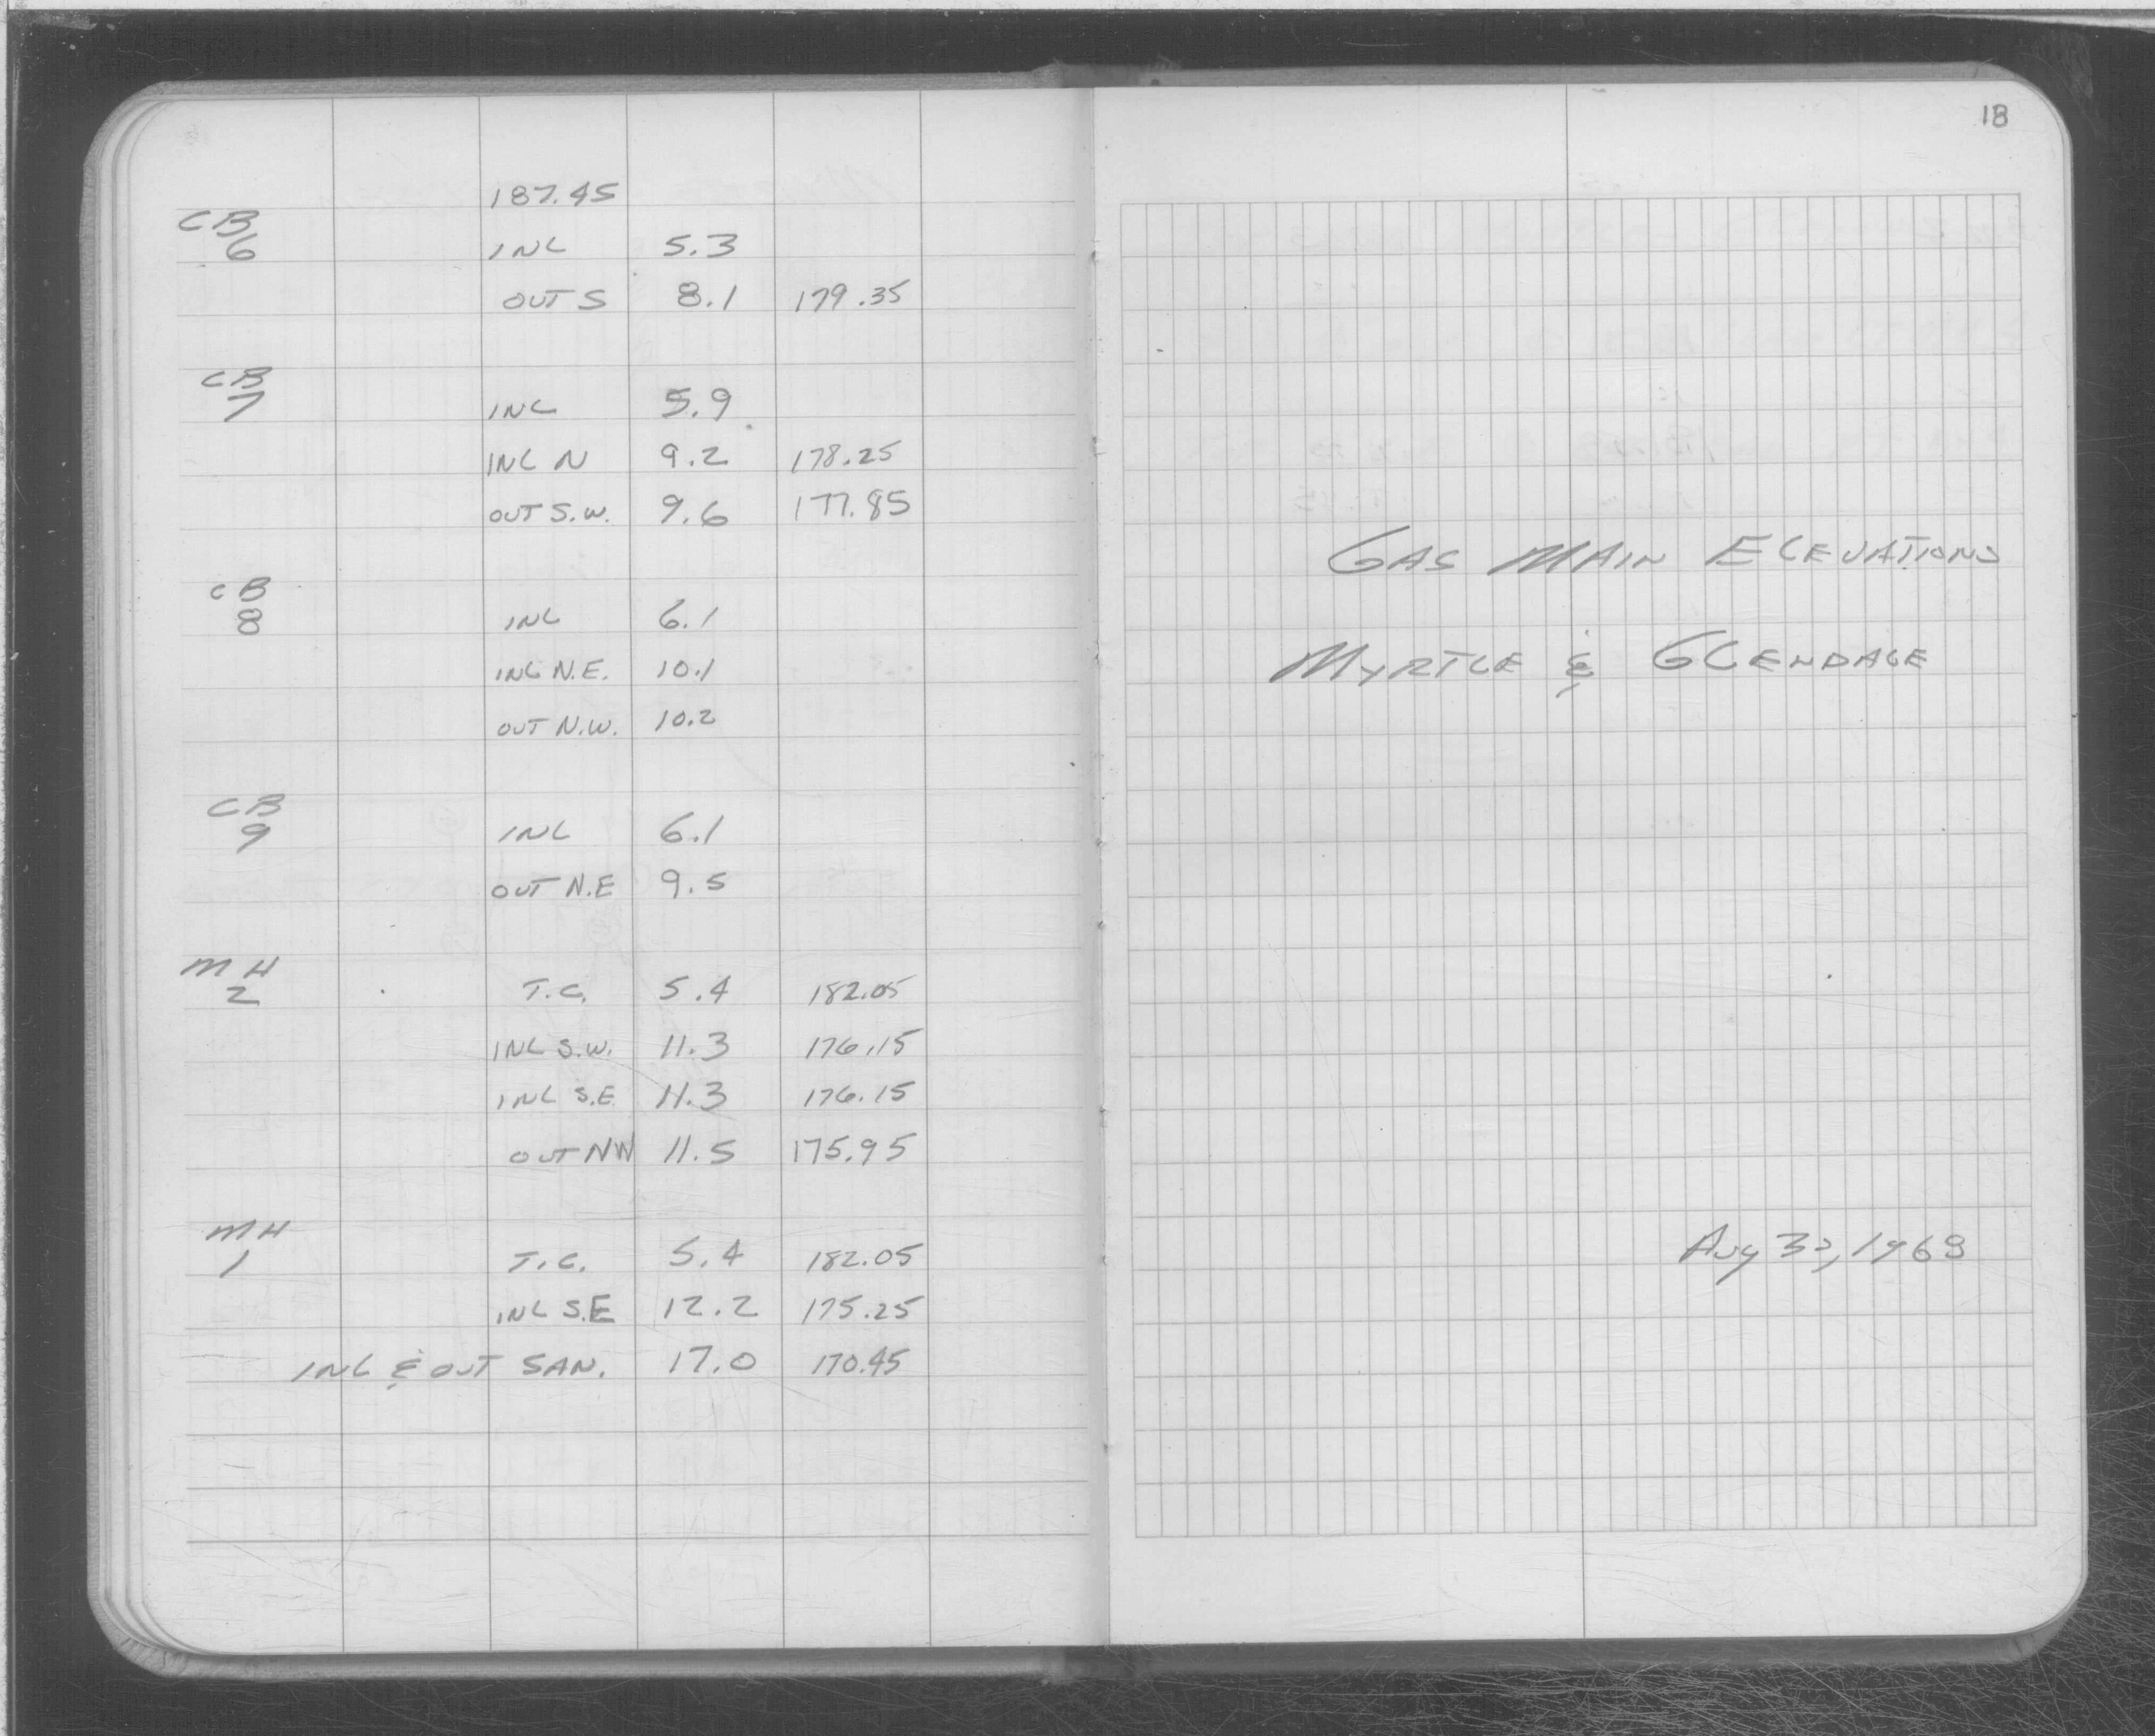 187.45
CB
6
INL 5.3
OUT S 8.1 179.35
CB
7
INL 5.9
INL N 9.2 178.25
OUT S.W. 9.6 177.85
CB
8
INL 6.1
INL N.E. 10.1
OUT N.W. 10.2
CB
9
INL 6.1
OUT N.E 9.5
MH
2
T.C. 5.4 182.05
INL S.W. 11.3 176.15
INL S.E. 11.3 176.15
OUT NW 11.5 175.95
MH
1
T.C. 5.4 182.05
INL S.E 12.2 175.25
INL & OUT SAN. 17.0 170.45
18
GAS MAIN ELEVATIONS
MYRTLE & GLENDALE
Aug